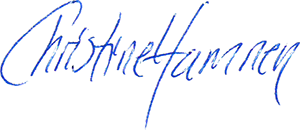 Christine Hamnen